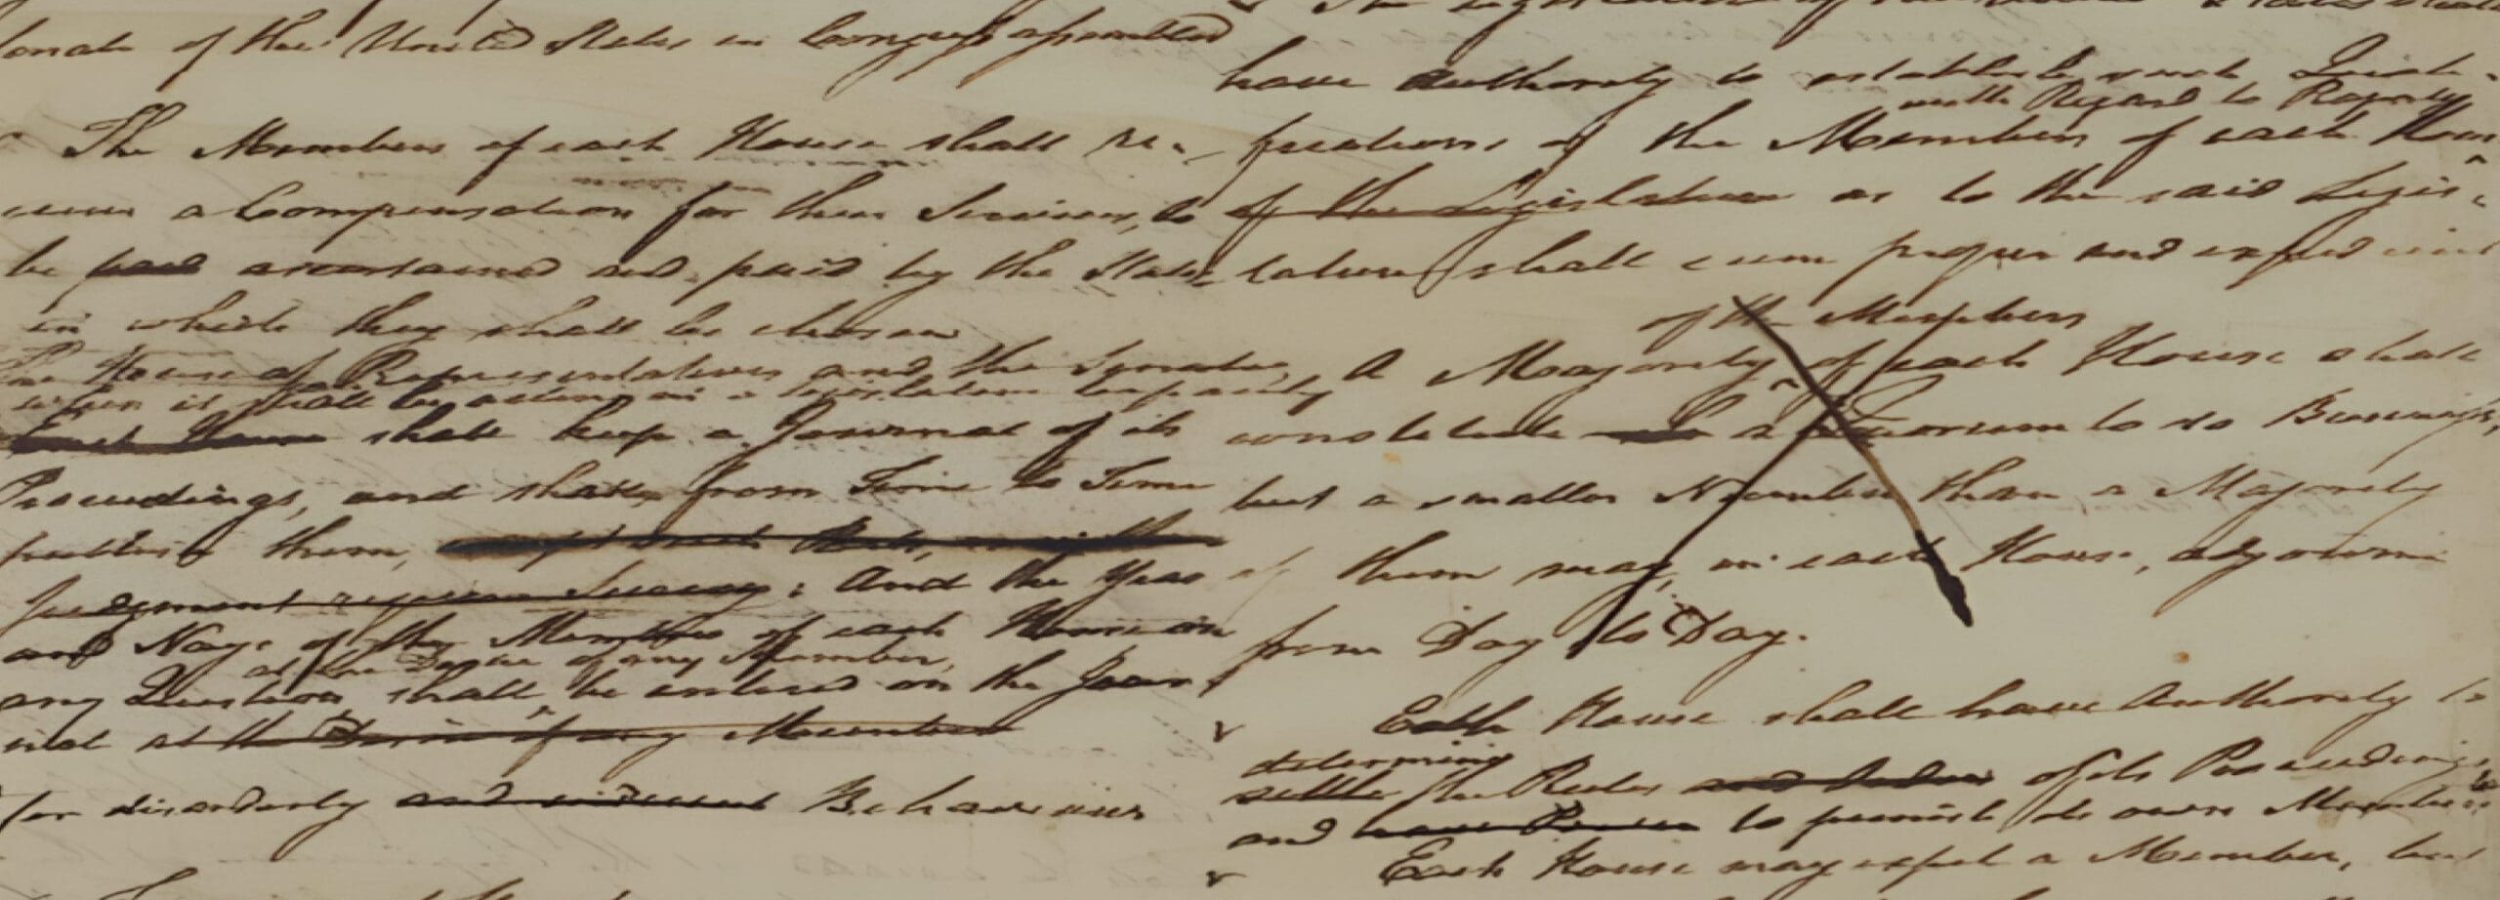 of the United States in Congress assembled
The Members of each House shall re-
ceive a Compensation for their Services, to
be paid ascertained and paid by the State
in which they shall be chosen
The House of Representatives and the Senate,
when it shall be acting in a legislative Capacity,
Each House shall keep a Journal of its
Proceedings, and shall, from Time to Time
publish them, except such Parts,
Judgment require Secrecy; and the Yeas
and Nays of the Members of each House on
at the Desire of any Member,
any Question shall, be entered on the Jour-
nal at the Desire of any Member
for disorderly and indecent Behaviour
The Legislature of the United States shall
have Authority to establish such Quali-
with Regard to Property
fications of the Members of each House
of the Legislature as to the said Legis-
lature shall seem proper and expedient
of the Members
A Majority of each House shall
constitute a Quorum to do Business,
but a smaller Number than a Majority
of them may, in each House, adjourn
from Day to Day.
Each House shall have Authority to
determine
settle the Rules and Order of its Proceedings,
and have Power to punish its own Members
Each House may expel a Member, but